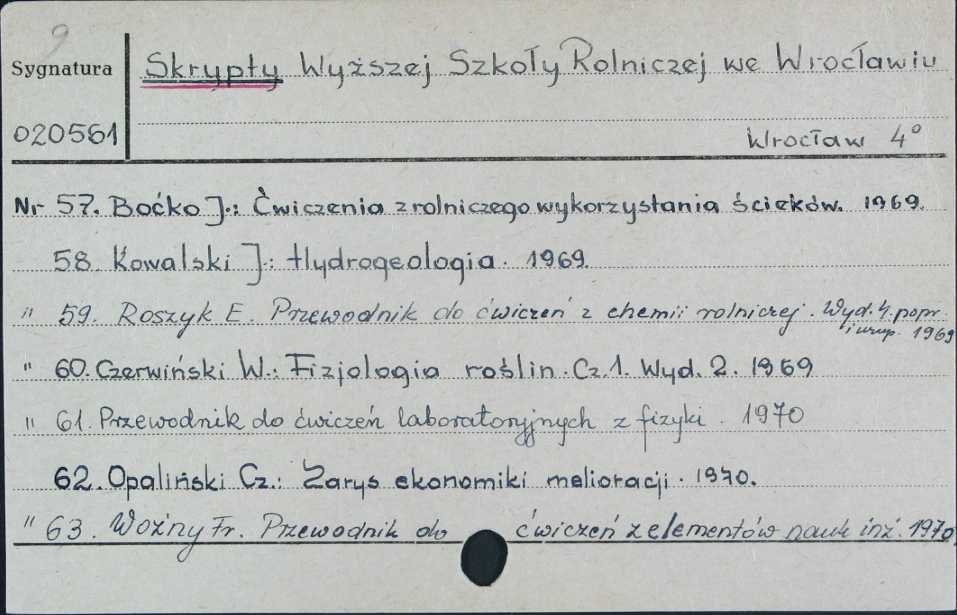 9
Sygnatura
Skrypty Wyższej Szkoły Rolniczej we Wrocławiu
020561
Wrocław 4°
Nr 57. Boćko J.: Ćwiczenia z rolniczego wykorzystania ścieków. 1969.
58. Kowalski J.: Hydrogeologia. 1969.
" 59. Roszyk E. Przewodnik do ćwiczeń z chemii rolniczej. Wyd. 4. popr.
i uzup. 1969
" 60. Czerwiński W.: Fizjologia roślin. Cz. 1. Wyd. 2. 1969
" 61. Przewodnik do ćwiczeń laboratoryjnych z fizyki. 1970
62. Opaliński Cz.: Zarys ekonomiki melioracji. 1970.
" 63. Woźny Fr. Przewodnik do ćwiczeń z elementów nauk inż. 1970